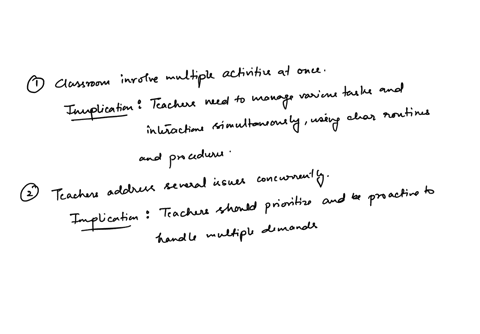 ① Classroom involve multiple activities at once.
Implication : Teachers need to manage various tasks and
interactions simultaneously, using clear routines
and procedures.
② Teachers address several issues concurrently.
Implication : Teachers should prioritize and be proactive to
handle multiple demands